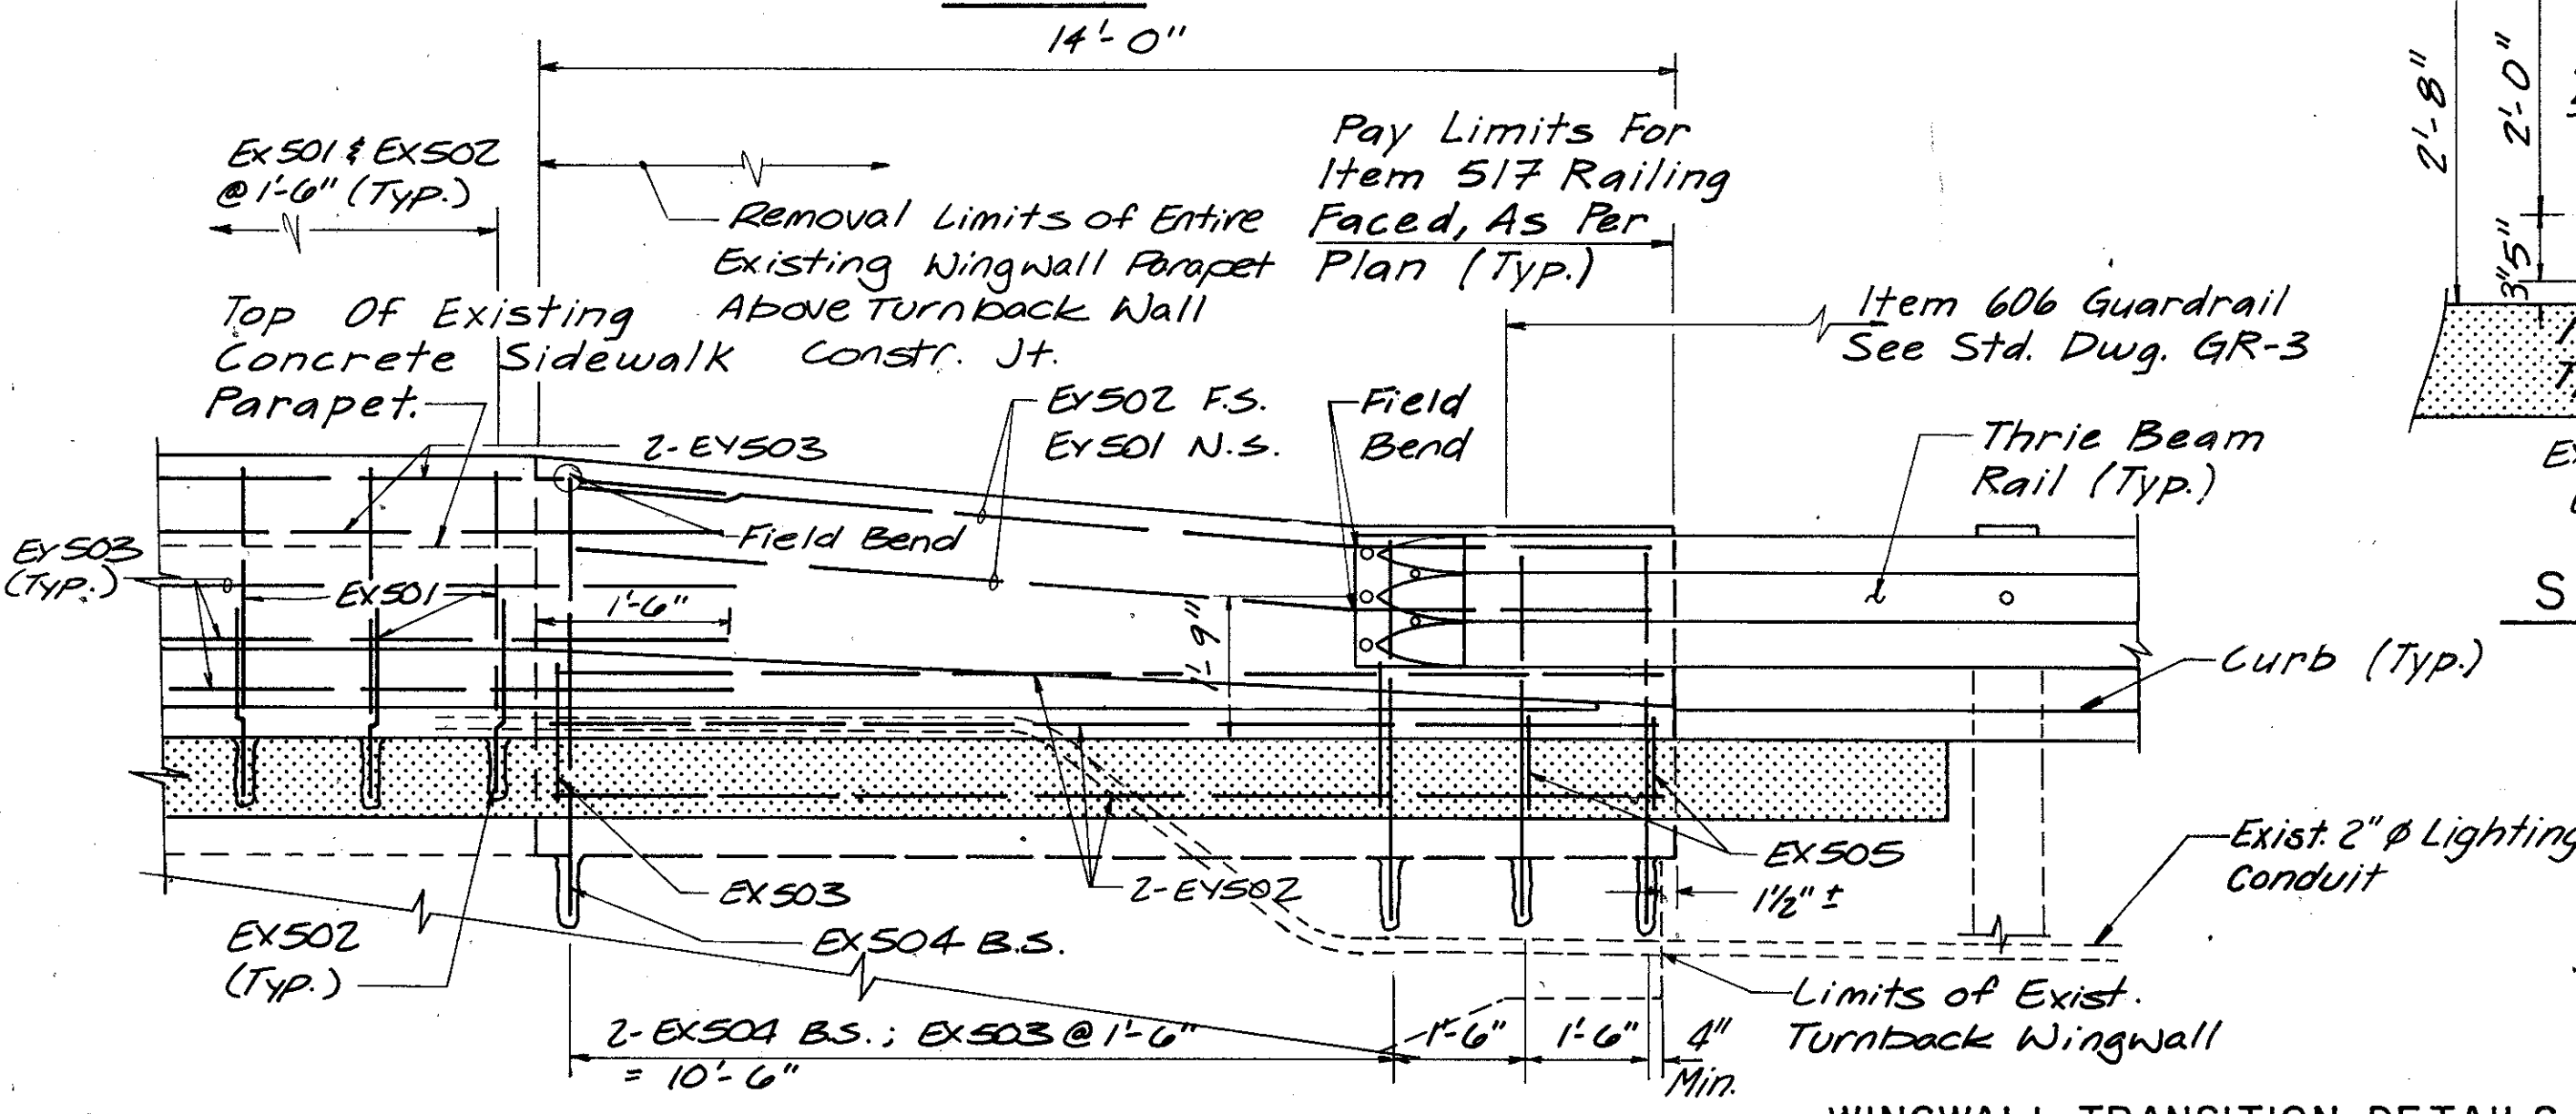 14'-0"
Ex501 & EX502
@ 1'-6" (Typ.)
Removal Limits of Entire
Existing Wingwall Parapet
Above Turnback Wall
Constr. Jt.
Pay Limits For
Item 517 Railing
Faced, As Per
Plan (Typ.)
Item 606 Guardrail
See Std. Dwg. GR-3
Top Of Existing
Concrete Sidewalk
Parapet.
2-EY503
EY502 F.S.
EY501 N.S.
Field
Bend
Thrie Beam
Rail (Typ.)
Field Bend
EY503
(Typ.)
EX501
1'-6"
1'-9"
Curb (Typ.)
EX503
2-EY502
EX505
1½" ±
Exist. 2" Ø Lighting
Conduit
EX502
(Typ.)
EX504 B.S.
Limits of Exist.
Turnback Wingwall
2-EX504 B.S.; EX503 @ 1'-6"
= 10'-6"
1'-6"
1'-6"
4"
Min.
2'-8"
2'-0"
5"
3"
S
WINGWALL TRANSITION DETAILS